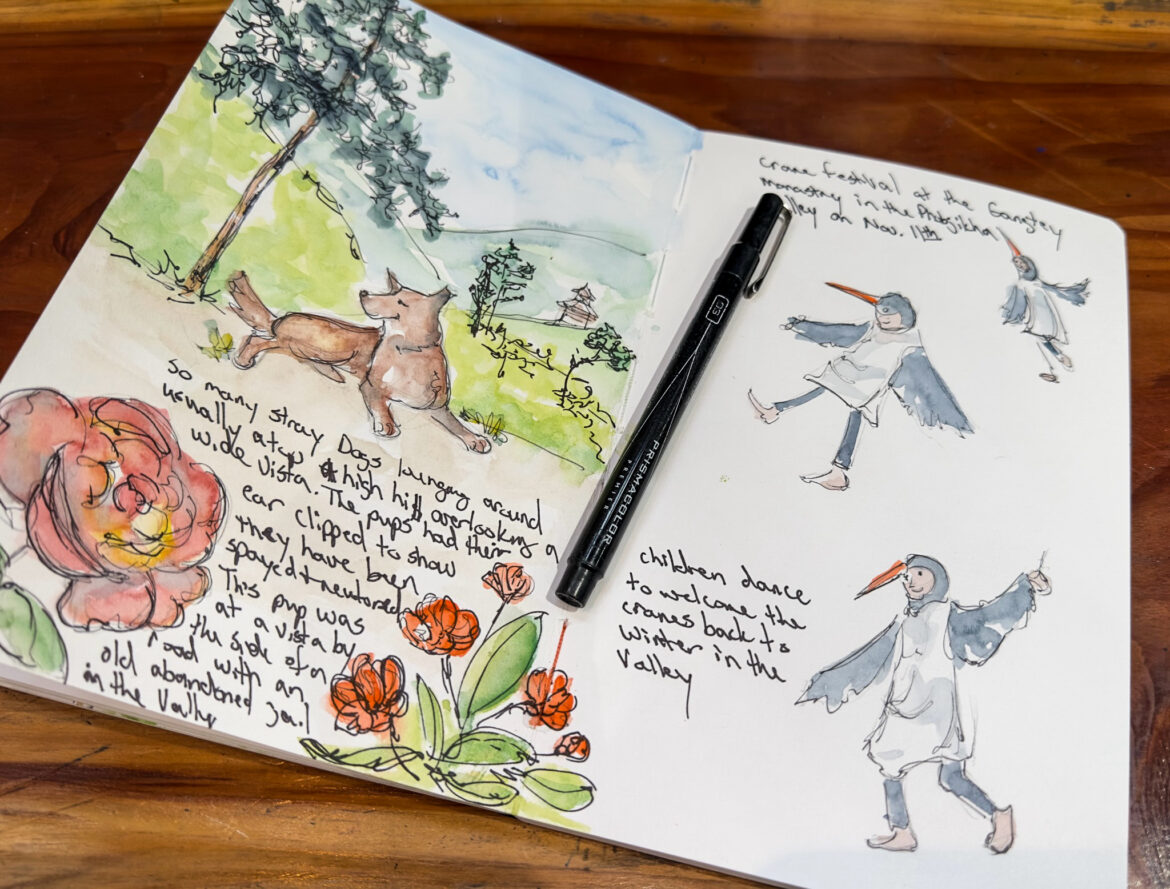 So many stray Dogs lounging around
usually atop a high hill overlooking a
wide vista. The pups had their
ear clipped to show
they have been
spayed + neutored
This pup was
at a vista by
the side of a
road with an
old abandoned Jail
in the Vally
Crane Festival at the Gangtey
monastry in the Phobjikha
lley on Nov. 11th
03
PRISMACOLOR
PREMIER
children dance
to welcome the
cranes back to
Winter in the
Valley